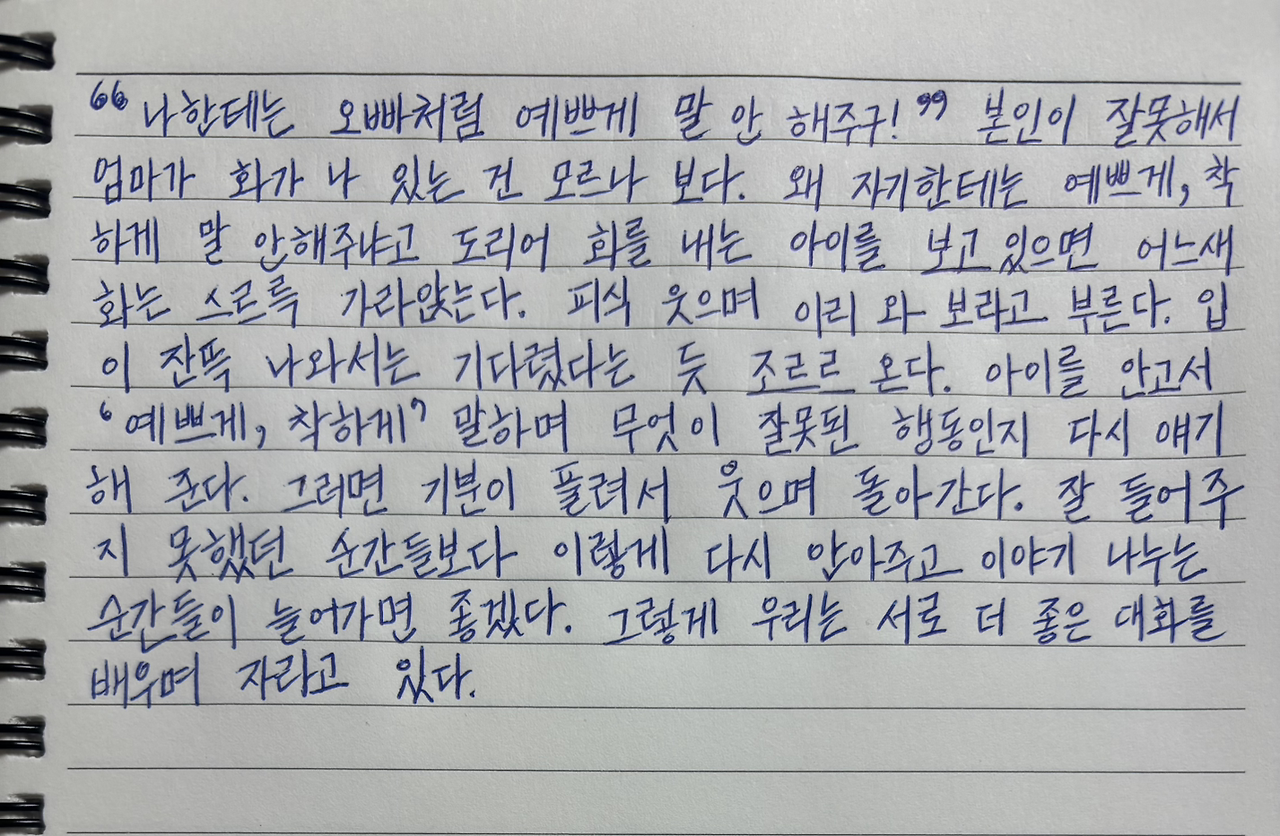 “나한테는 오빠처럼 예쁘게 말 안 해주구!” 본인이 잘못해서
엄마가 화가 나 있는 건 모르나 보다. 왜 자기한테는 예쁘게, 착
하게 말 안해주냐고 도리어 화를 내는 아이를 보고 있으면 어느새
화는 스르륵 가라앉는다. 피식 웃으며 이리 와 보라고 부른다. 입
이 잔뜩 나와서는 기다렸다는 듯 조르르 온다. 아이를 안고서
‘예쁘게, 착하게’ 말하며 무엇이 잘못된 행동인지 다시 얘기
해 준다. 그러면 기분이 풀려서 웃으며 돌아간다. 잘 들어주
지 못했던 순간들보다 이렇게 다시 안아주고 이야기 나누는
순간들이 늘어가면 좋겠다. 그렇게 우리는 서로 더 좋은 대화를
배우며 자라고 있다.